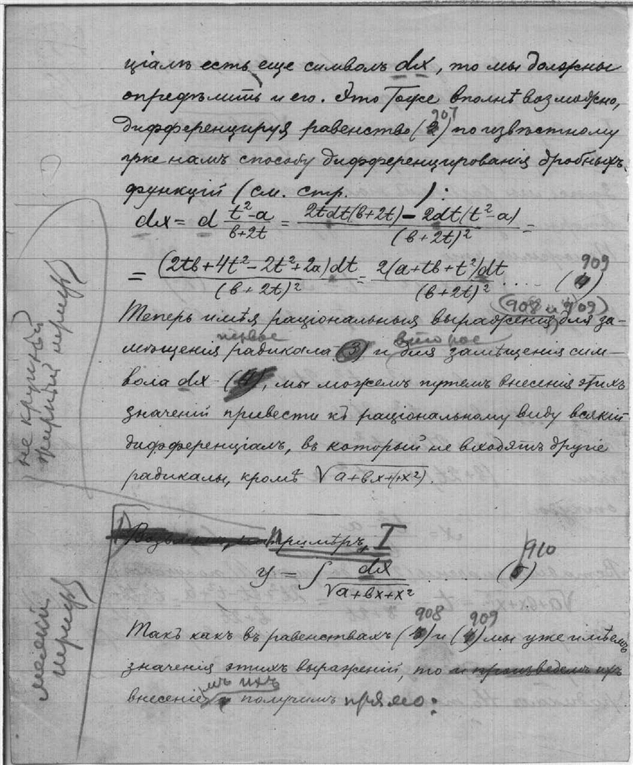 ціалъ есть еще символъ dx, то мы должны
опредѣлить и его. Это тоже вполнѣ возможно,
дифференцируя равенство (907) по извѣстному
уже намъ способу дифференцированія дробныхъ
функцій (см. стр. ):
dx = d (t²-a)/(b+2t) = (2tdt(b+2t) - 2dt(t²-a))/(b+2t)² =
= (2tb+4t²-2t²+2a)dt/(b+2t)² = 2(a+tb+t²)dt/(b+2t)² .... (909)
(908 и 909)
Теперь имѣя раціональныя выраженія для за-
первое второе
мѣщенія радикала (3) и для замѣщенія сим-
вола dx (4), мы можемъ путемъ внесенія этихъ
значеній привести къ раціональному виду всякій
дифференціалъ, въ который не входятъ другіе
радикалы, кромѣ √(a+bx+x²).
не крупный
жирный шрифтъ
Примѣръ I
y = ∫ dx/√(a+bx+x²) (910)
мелкій
шрифтъ
Такъ какъ въ равенствахъ (908) и (909) мы уже имѣемъ
значенія этихъ выраженій, то и произведемъ ихъ
мъ ихъ
внесеніе и получимъ прямо: